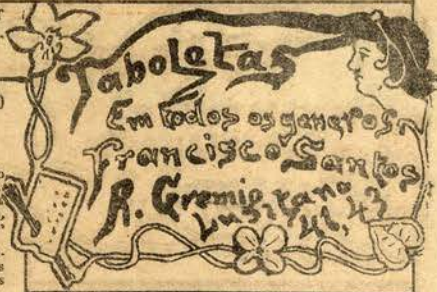 Taboletas
Em todos os generos
Francisco Santos
R. Gremio
Lusitano 43